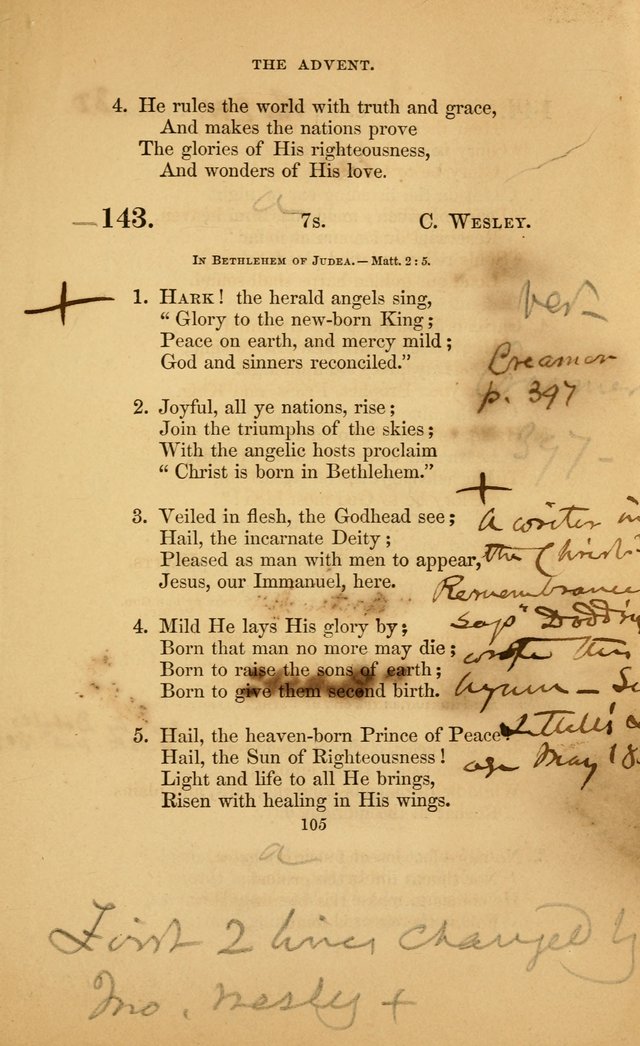 THE ADVENT.
4. He rules the world with truth and grace,
And makes the nations prove
The glories of His righteousness,
And wonders of His love.
a
143. 7s. C. WESLEY.
IN BETHLEHEM OF JUDEA. — Matt. 2 : 5.
+ 1. HARK ! the herald angels sing,
“ Glory to the new-born King ;
Peace on earth, and mercy mild ;
God and sinners reconciled.”
ver-
Creamer
p. 397
397-
2. Joyful, all ye nations, rise ;
Join the triumphs of the skies ;
With the angelic hosts proclaim
“ Christ is born in Bethlehem.”
3. Veiled in flesh, the Godhead see ;
Hail, the incarnate Deity ;
Pleased as man with men to appear,
Jesus, our Immanuel, here.
4. Mild He lays His glory by ;
Born that man no more may die ;
Born to raise the sons of earth ;
Born to give them second birth.
5. Hail, the heaven-born Prince of Peace !
Hail, the Sun of Righteousness !
Light and life to all He brings,
Risen with healing in His wings.
+
A writer in
the Christi-
Remembrance
says Doddri
wrote this
hymn — Se
Littell's
age May 18
105
a
First 2 lines changed by
Jno. Wesley +